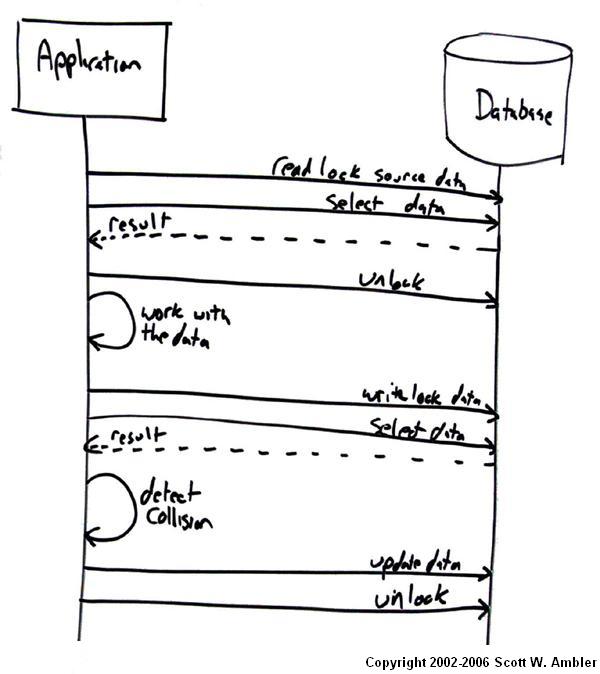 Application
Database
read lock source data
select data
result
unlock
work with
the data
write lock data
select data
result
detect
collision
update data
unlock
Copyright 2002-2006 Scott W. Ambler